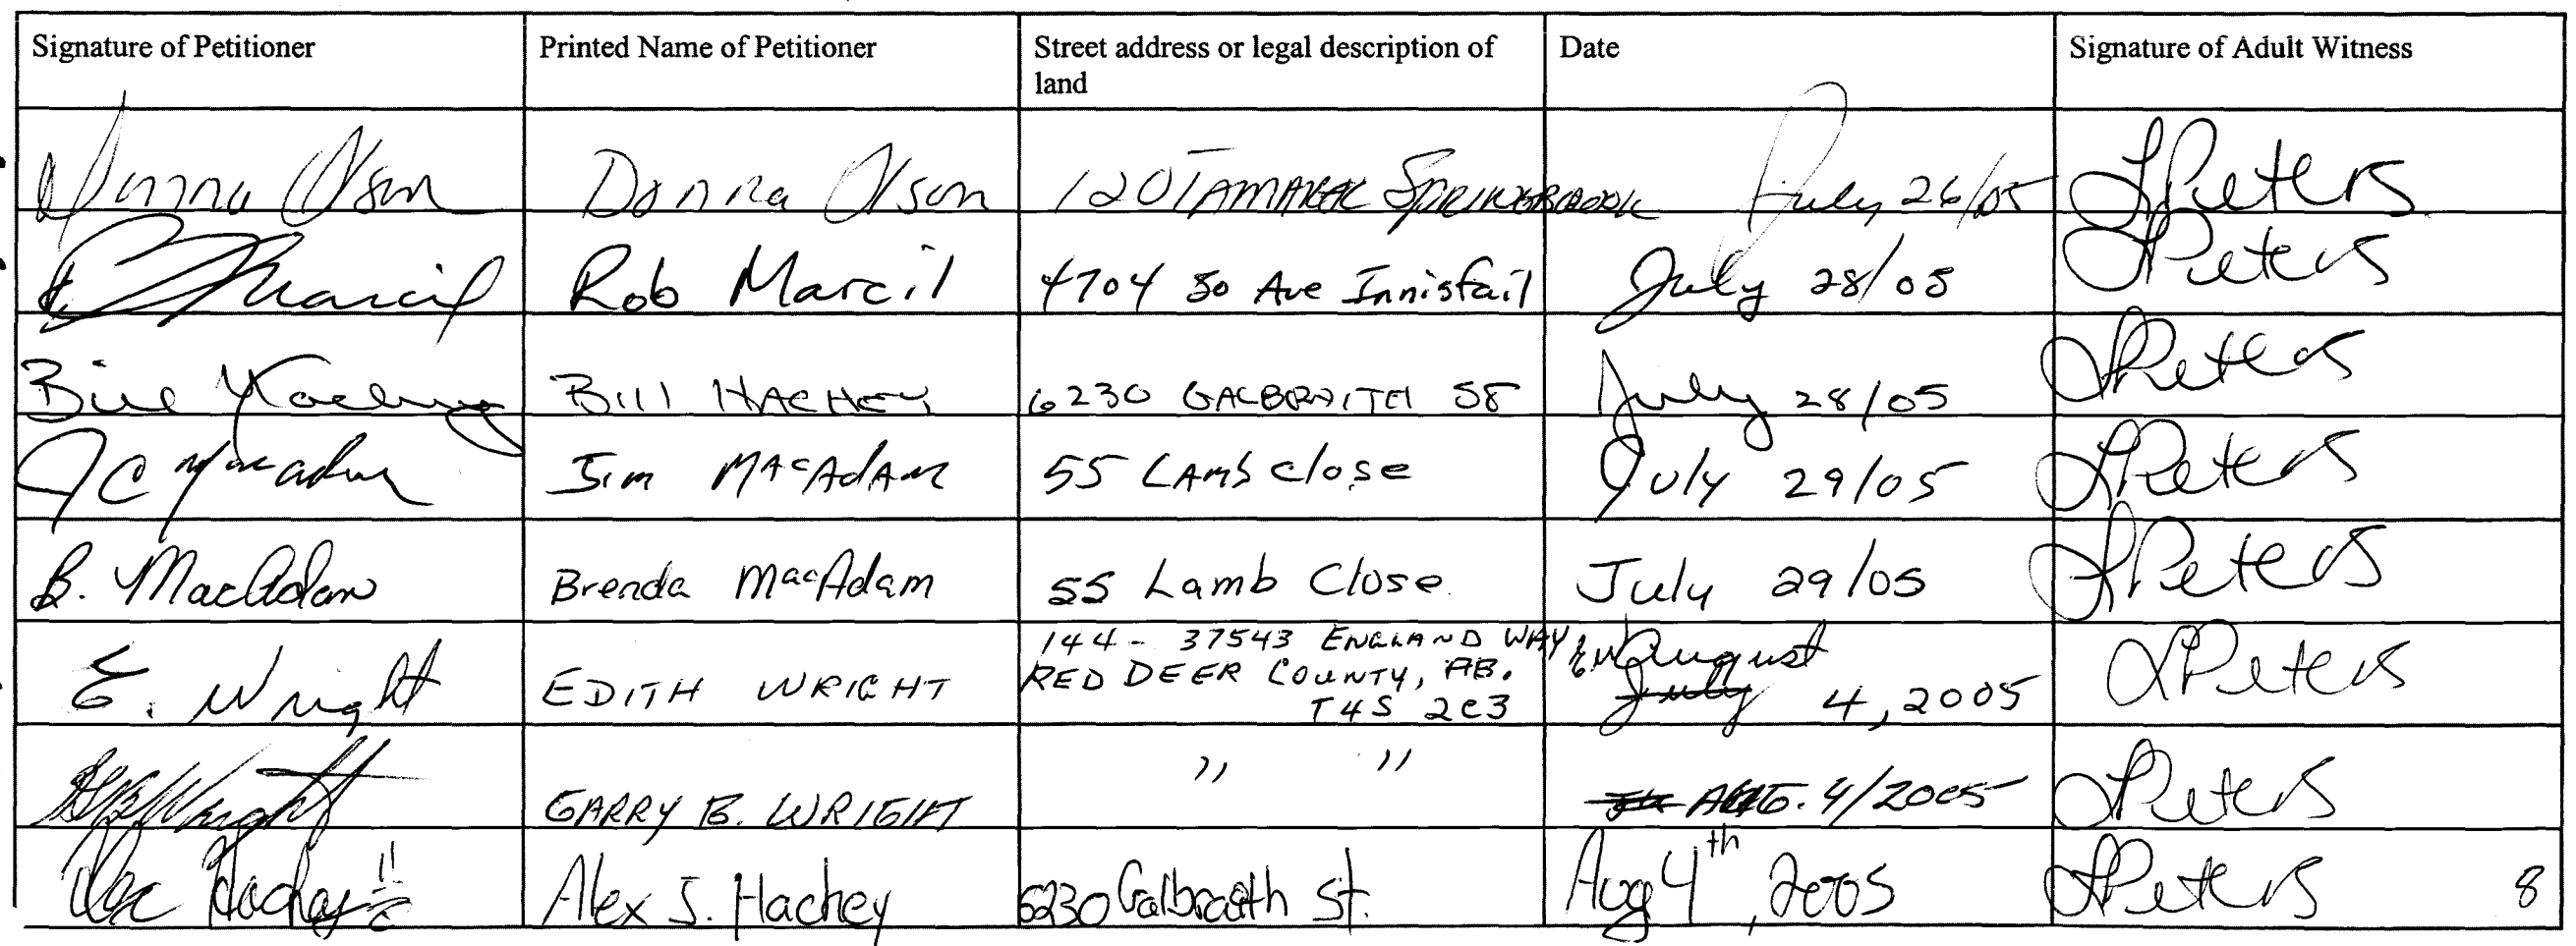 Signature of Petitioner Printed Name of Petitioner Street address or legal description of land Date Signature of Adult Witness
Donna Olson Donna Olson 120 TAMARAC SPRINGBROOK July 26/05 LPeters
Marcil Rob Marcil 4704 50 Ave Innisfail July 28/05 LPeters
Bill Hachey Bill HACHEY 6230 GALBRAITH ST July 28/05 LPeters
JC MacAdam Jim MacAdam 55 Lamb Close July 29/05 LPeters
B. MacAdam Brenda MacAdam 55 Lamb Close. July 29/05 LPeters
E. Wright EDITH WRIGHT 144 - 37543 ENGLAND WAY RED DEER COUNTY, AB. T4S 2C3 EW August July 4, 2005 LPeters
GB Wright GARRY B. WRIGHT " " AUG. 4/2005 LPeters
Alex Hachey Alex J. Hachey 6230 Galbraith St. Aug 4th, 2005 LPeters
8